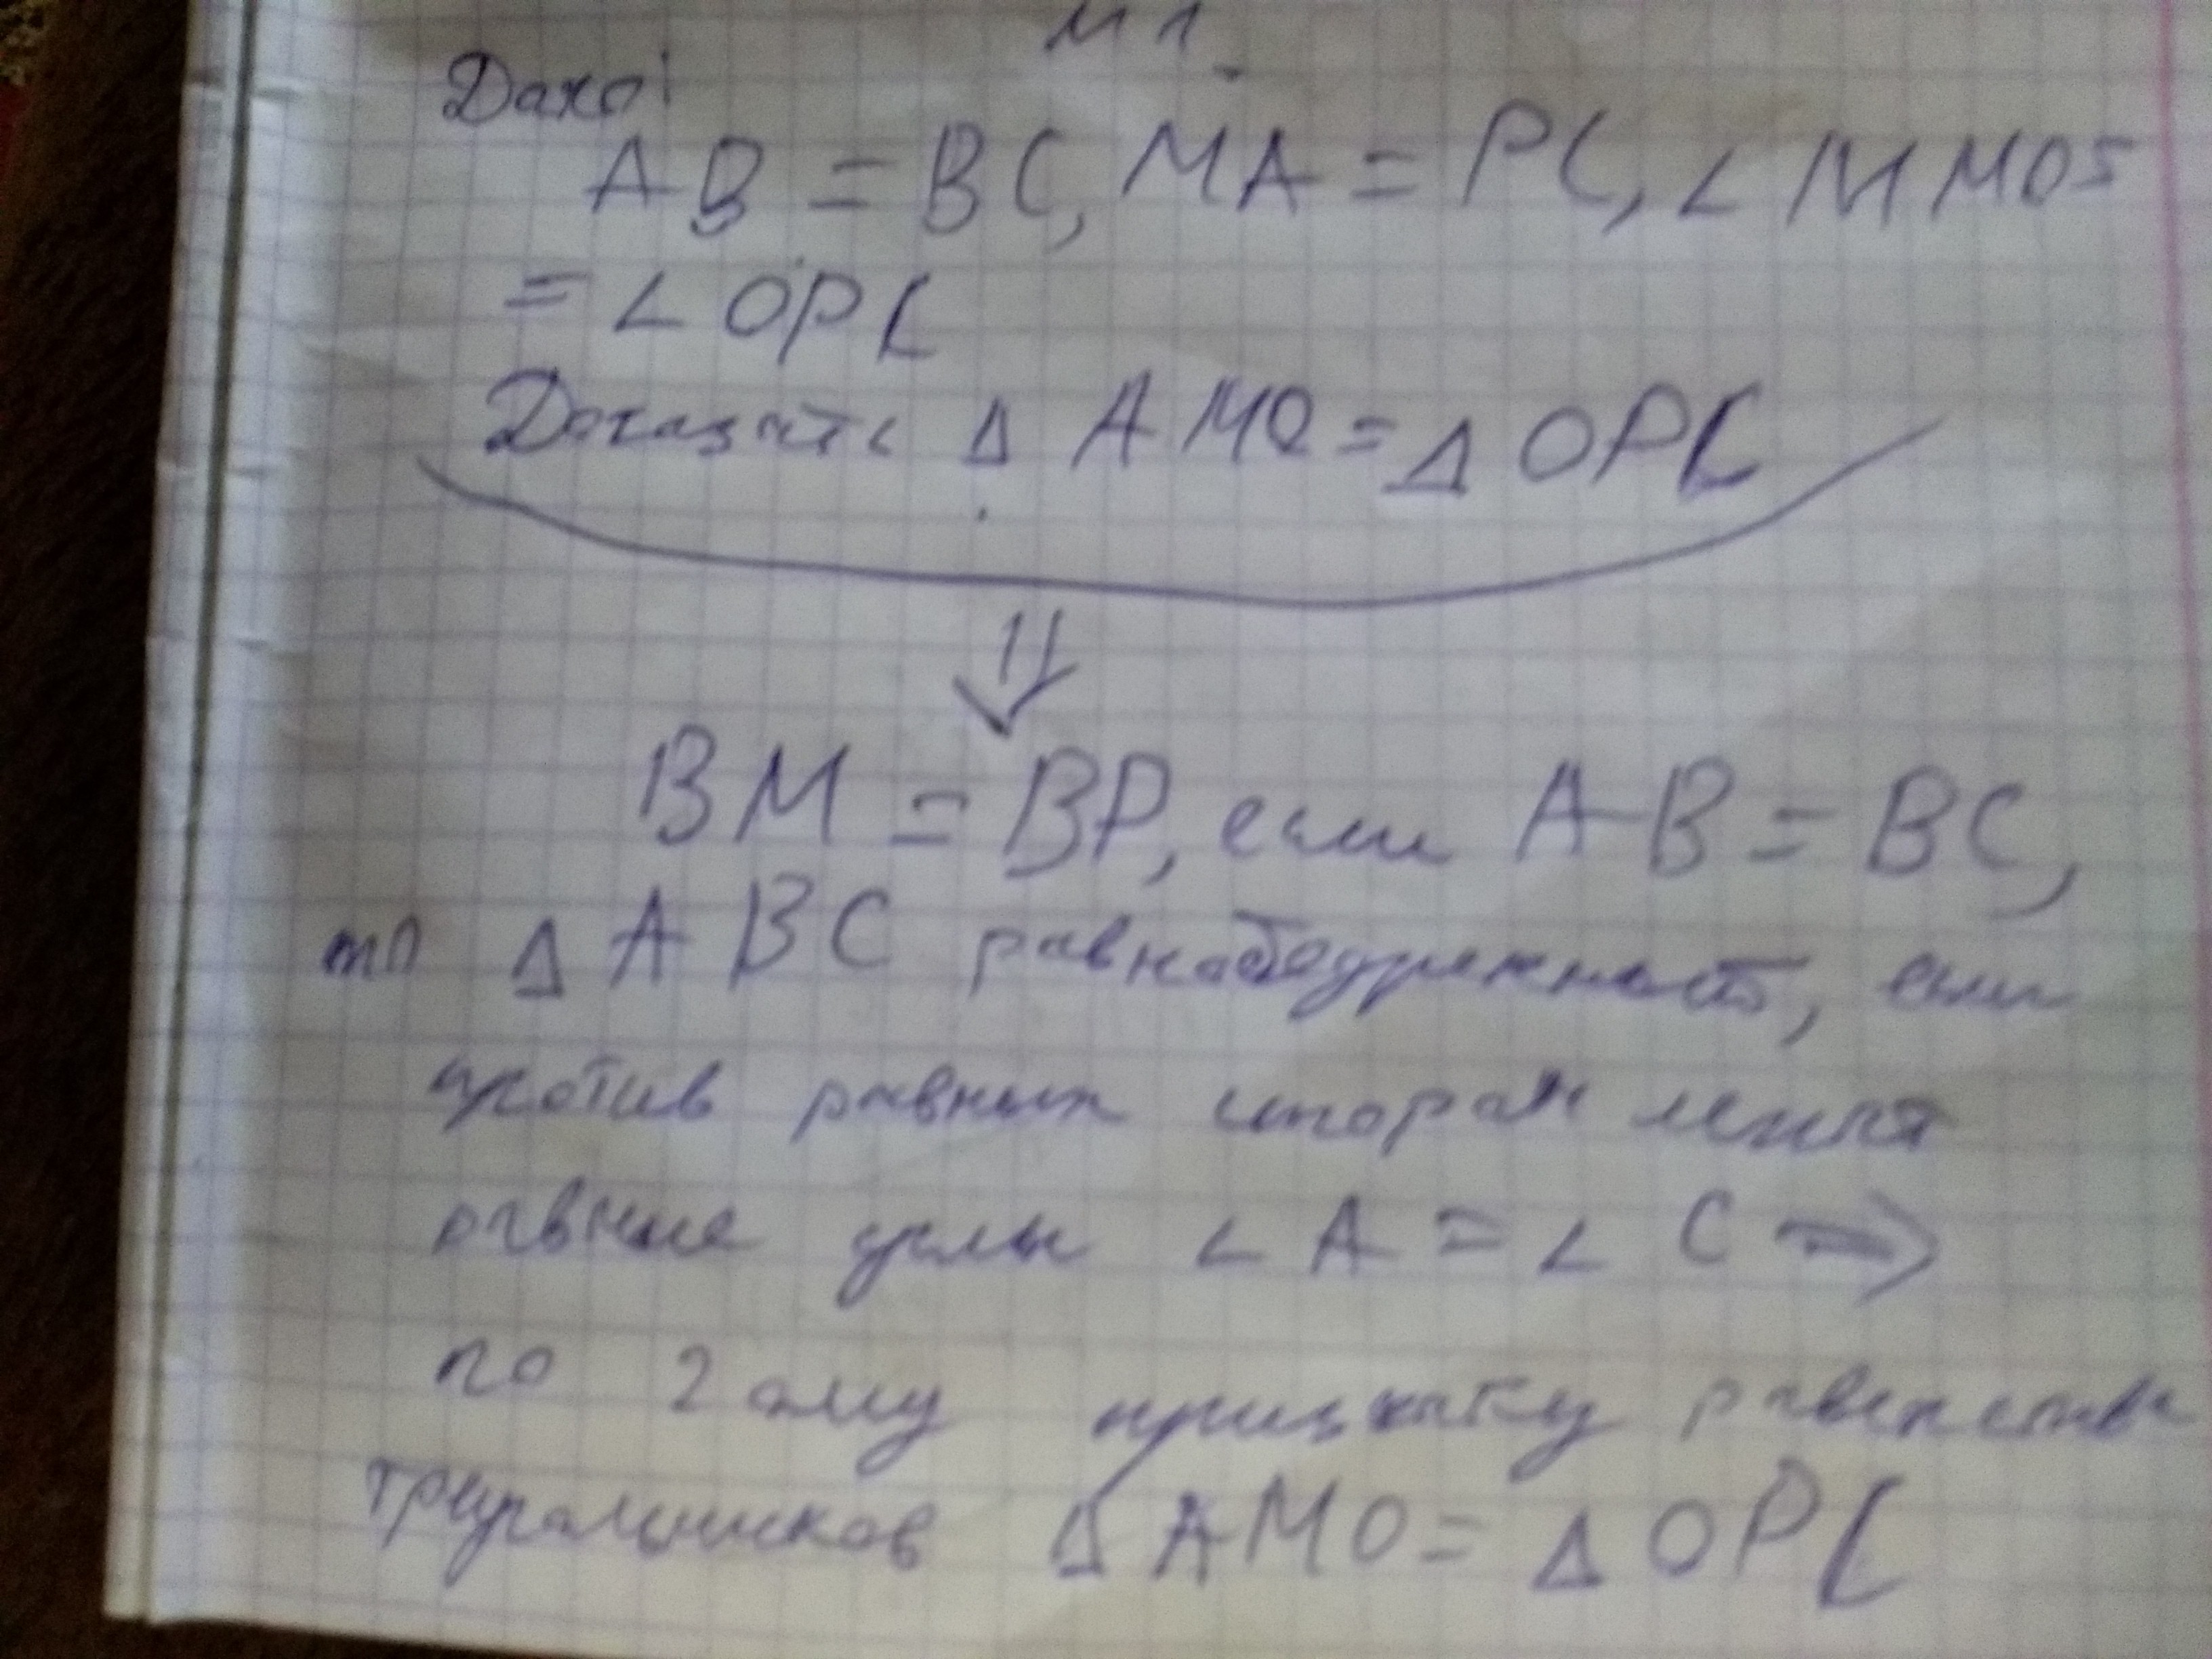 №1
Дано:
AB = BC, MA = PC, ∠
= ∠ OPC
Доказать Δ AMO = Δ OPC
BM = BP, если AB = BC,
то Δ ABC равнобедренный, если
против равных сторон лежат
равные углы ∠ A = ∠ C ⇒
по 2 ому признаку равенства
треугольников Δ AMO = Δ OPC